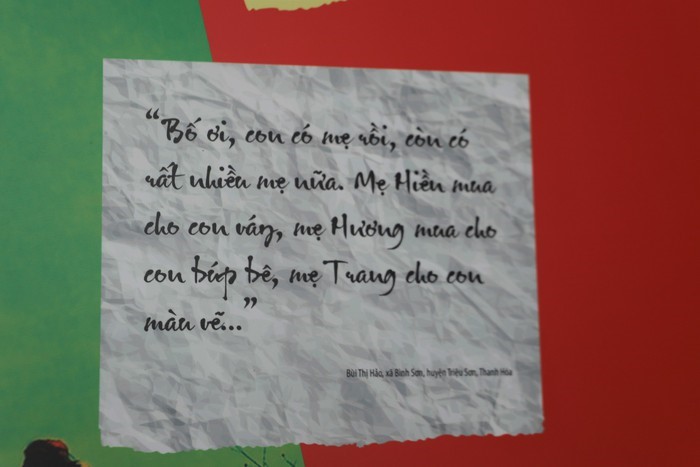 “Bố ơi, con có mẹ rồi, còn có
rất nhiều mẹ nữa. Mẹ Hiền mua
cho con váy, mẹ Hương mua cho
con búp bê, mẹ Trang cho con
màu vẽ...”
Bùi Thị Hảo, xã Bình Sơn, huyện Triệu Sơn, Thanh Hóa